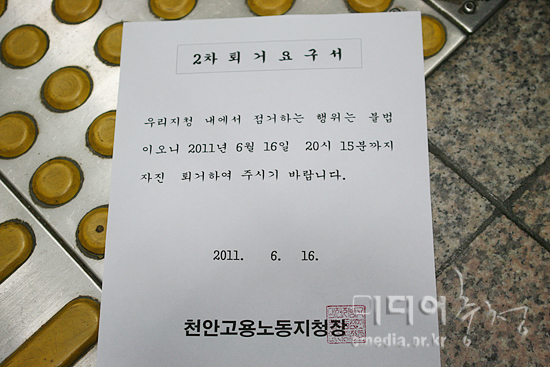 2차 퇴 거 요 구 서
우리지청 내에서 점거하는 행위는 불법
이오니 2011년 6월 16일 20시 15분까지
자진 퇴거하여 주시기 바랍니다.
2011. 6. 16.
천안고용노동지청장
미디어충청
cmedia.or.kr